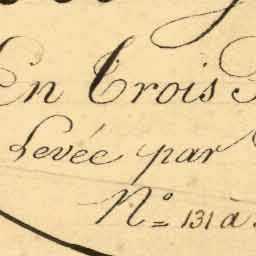 En Trois
Levée par
No= 131 à